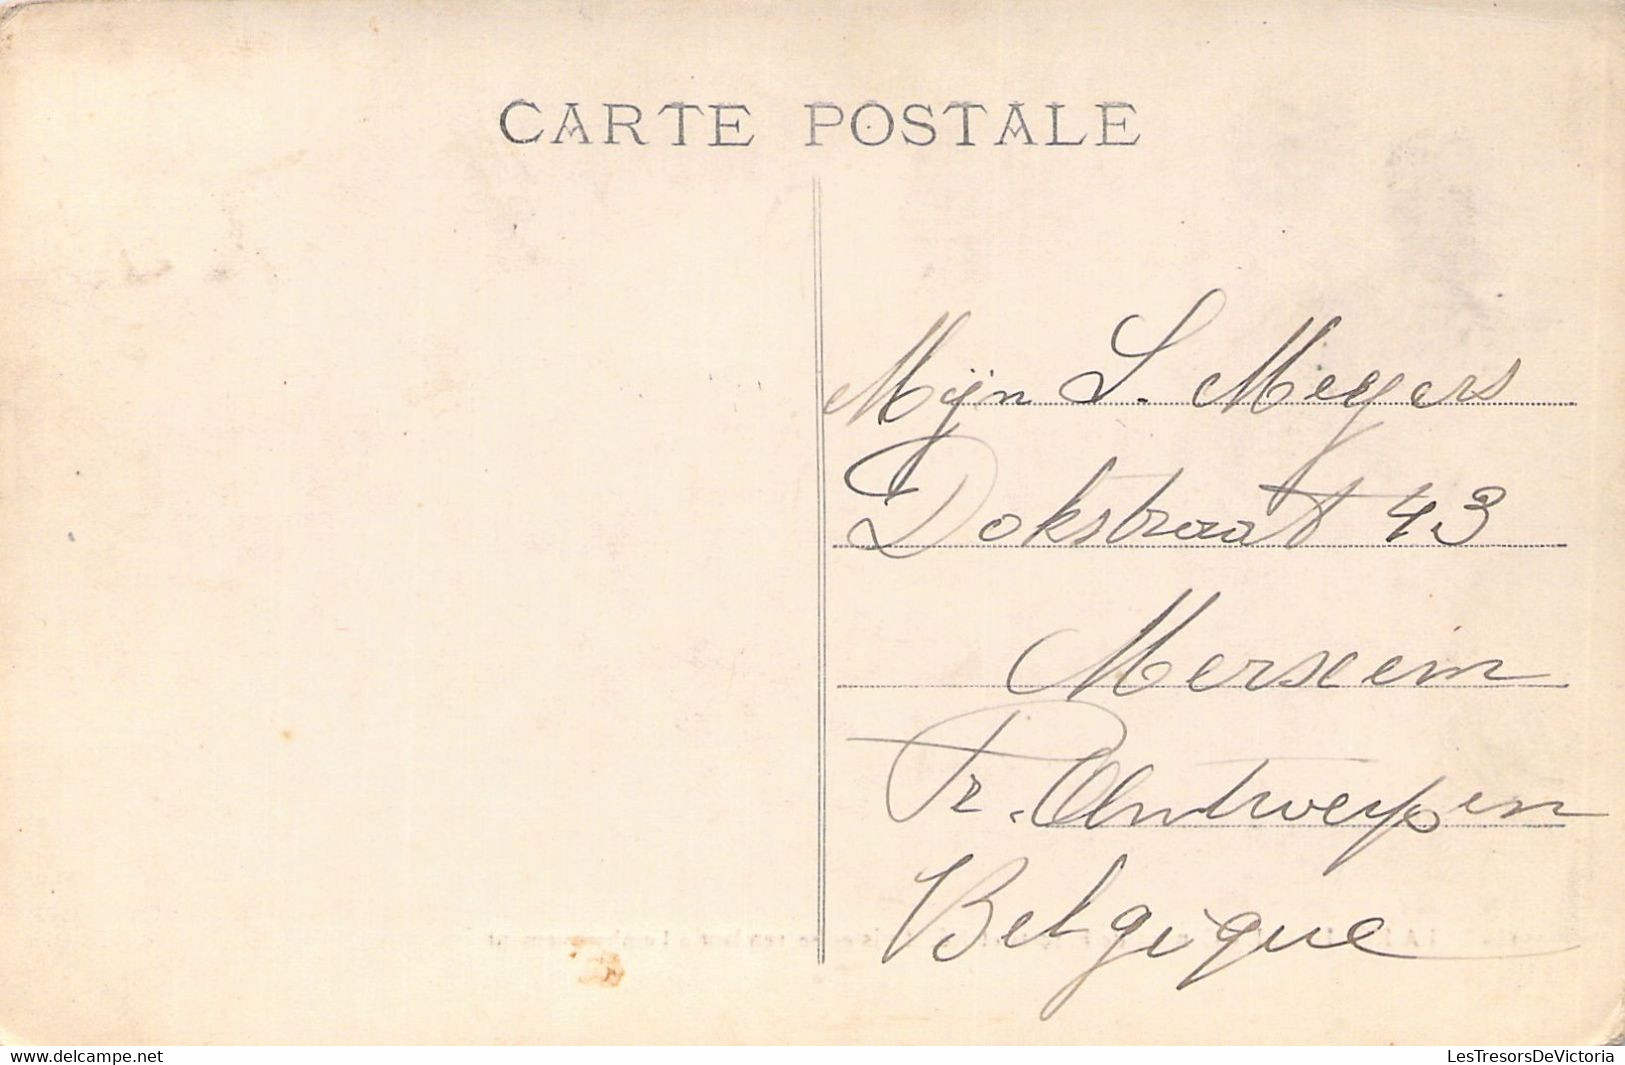 CARTE POSTALE
Mijn S. Meyers
Dokstraat 43
Merxem
Pr. Antwerpen
Belgique
www.delcampe.net
LesTresorsDeVictoria